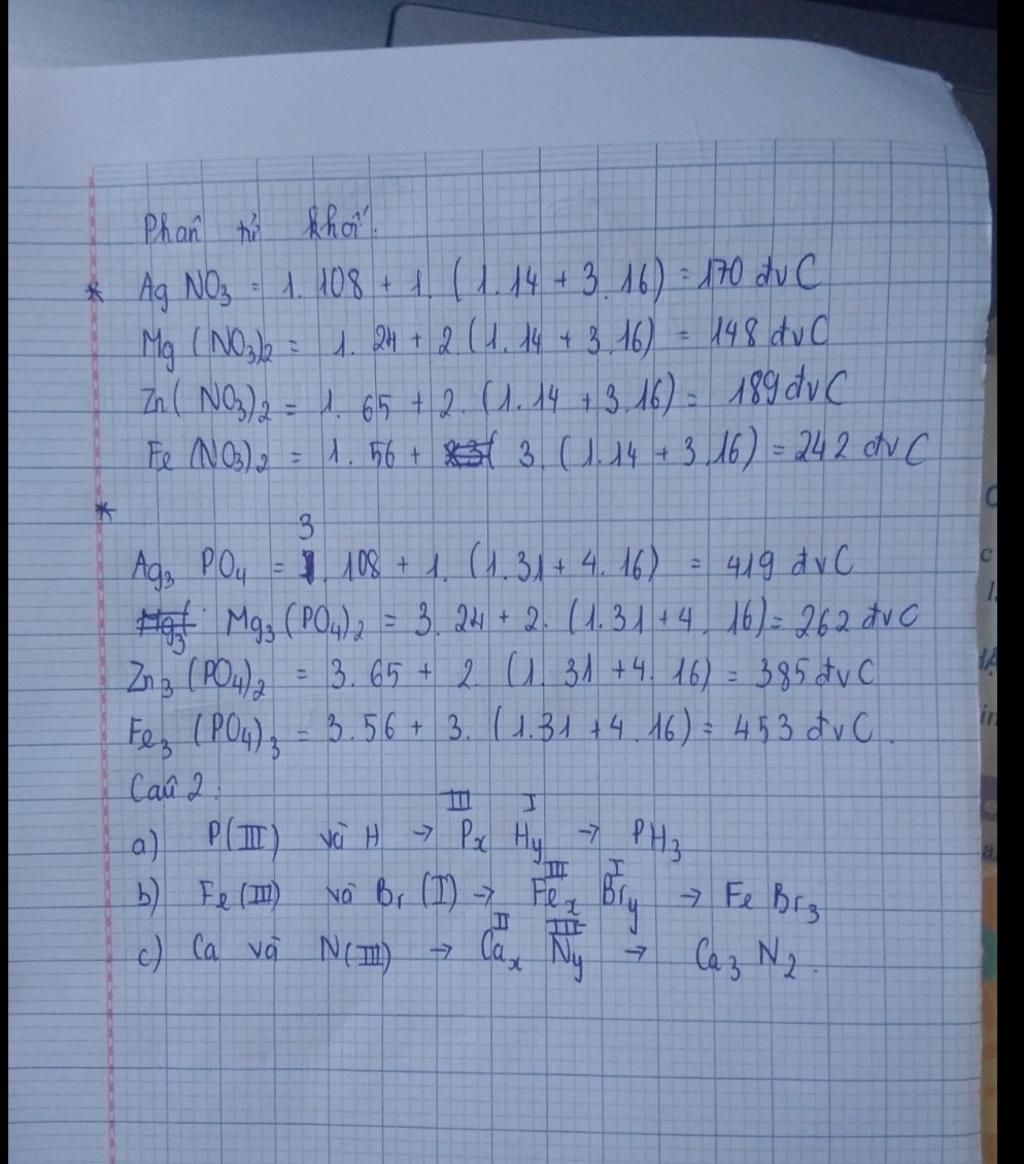 Phân tử khối:
* Ag NO3 = 1. 108 + 1. (1.14 + 3.16) = 170 đvC
Mg (NO3)2 = 1. 24 + 2 (1.14 + 3.16) = 148 đvC
Zn( NO3)2 = 1. 65 + 2. (1.14 + 3.16) = 189 đvC
Fe (NO3)2 = 1. 56 + 3. (1.14 + 3.16) = 242 đvC
*
Ag3 PO4 = 3. 108 + 1. (1.31 + 4.16) = 419 đvC
Mg3 (PO4)2 = 3. 24 + 2. (1.31 + 4. 16) = 262 đvC
Zn3 (PO4)2 = 3. 65 + 2. (1. 31 + 4. 16) = 385 đvC
Fe3 (PO4)3 = 3.56 + 3. (1.31 + 4.16) = 453 đvC.
Câu 2:
a) P(III) và H → PxIII HyI → PH3
b) Fe (III) và Br (I) → FexIII BryI → Fe Br3
c) Ca và N(III) → CaxII NyIII → Ca3 N2.